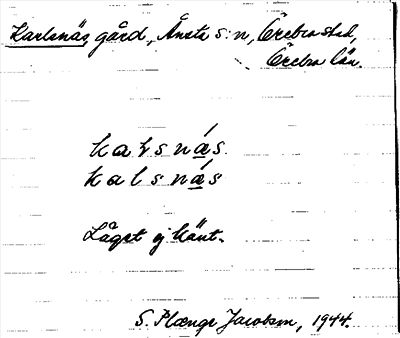 Karlsnäs gård, Ånsta s:n, Örebro stad,
Örebro län.
karsnás.
kalsnás
Läget ej känt.
S. Plænge Jacobson, 1944.